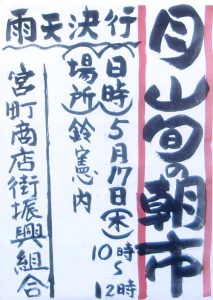 月山旬の朝市
(日時)5月17日(木)
10時〜12時
(場所)鈴憲内
雨天決行
宮町商店街振興組合